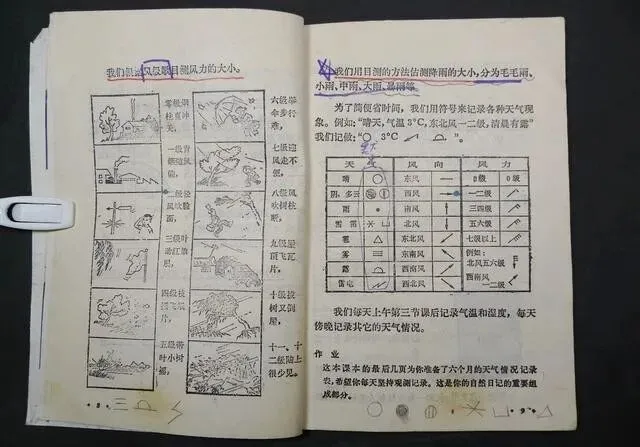 我们根据风级歌目测风力的大小。
零级烟
柱直冲
天，
一级青
烟随风
一级轻
风吹脸
面，
三级叶
动红旗
展，
四级枝
摇飞纸
片，
五级带
叶小树
摇，
六级举
伞步行
难，
七级迎
风走不
便，
八级风
吹树枝
断，
九级屋
顶飞瓦
片，
十级拔
树又倒
屋，
十一、十
二级陆上
很少见。
8
我们用目测的方法估测降雨的大小，分为毛毛雨、
小雨、中雨、大雨、暴雨等。
为了简便省时间，我们用符号来记录各种天气现
象。例如：“晴天，气温3℃，东北风一二级，清晨有露”
我们记做：“ 3℃ ”。
天气 风向 风力
晴 东风 0级 0级
阴、多云 西风 一二级
雨 南风 三四级
雪 雷 北风 五六级
雹 东北风 七级以上
雾 东南风 例如：
北风五六级
露 西南风 西南风
一二级
雷电 西北风
我们每天上午第三节课后记录气温和湿度，每天
傍晚记录其它的天气情况。
作业
这本课本的最后几页为你准备了六个月的天气情况记录
表，希望你每天坚持观测记录。这是你的自然日记的重要组
成部分。
9